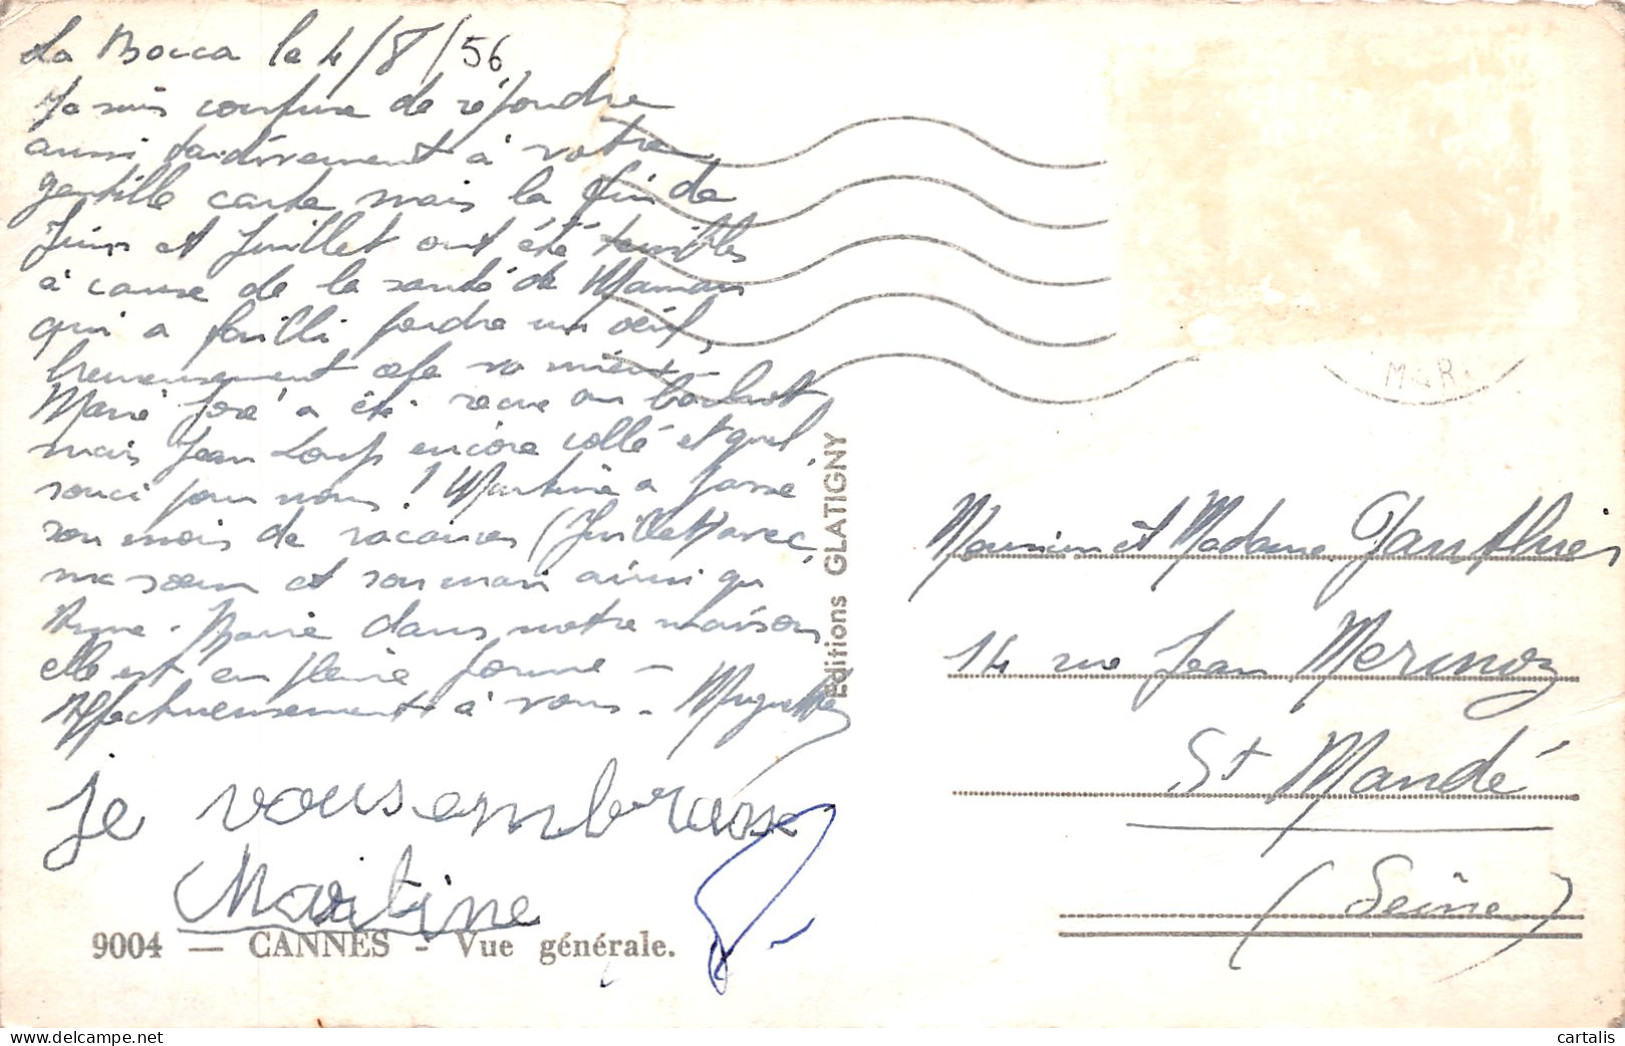 La Bocca le 4/8/56
Je suis confuse de répondre
aussi tardivement à votre
gentille carte mais la fin de
Juin et Juillet ont été terribles
à cause de la santé de Maman
qui a failli perdre un oeil,
heureusement cela va mieux -
Marie José a été reçue au bachot
mais Jean Loup encore collé et quel
souci pour nous ! Martine a passé
son mois de vacances (Juillet) avec
ma soeur et son mari ainsi qu'
Anne-Marie dans notre maison,
elle est en pleine forme -
Affectueusement à vous - Muguette
je vous embrasse
Martine
9004 — CANNES - Vue générale.
Editions GLATIGNY
M. R.
Monsieur et Madame Gauthier
14 rue Jean Mermoz
St Mandé
(Seine)
cartalis